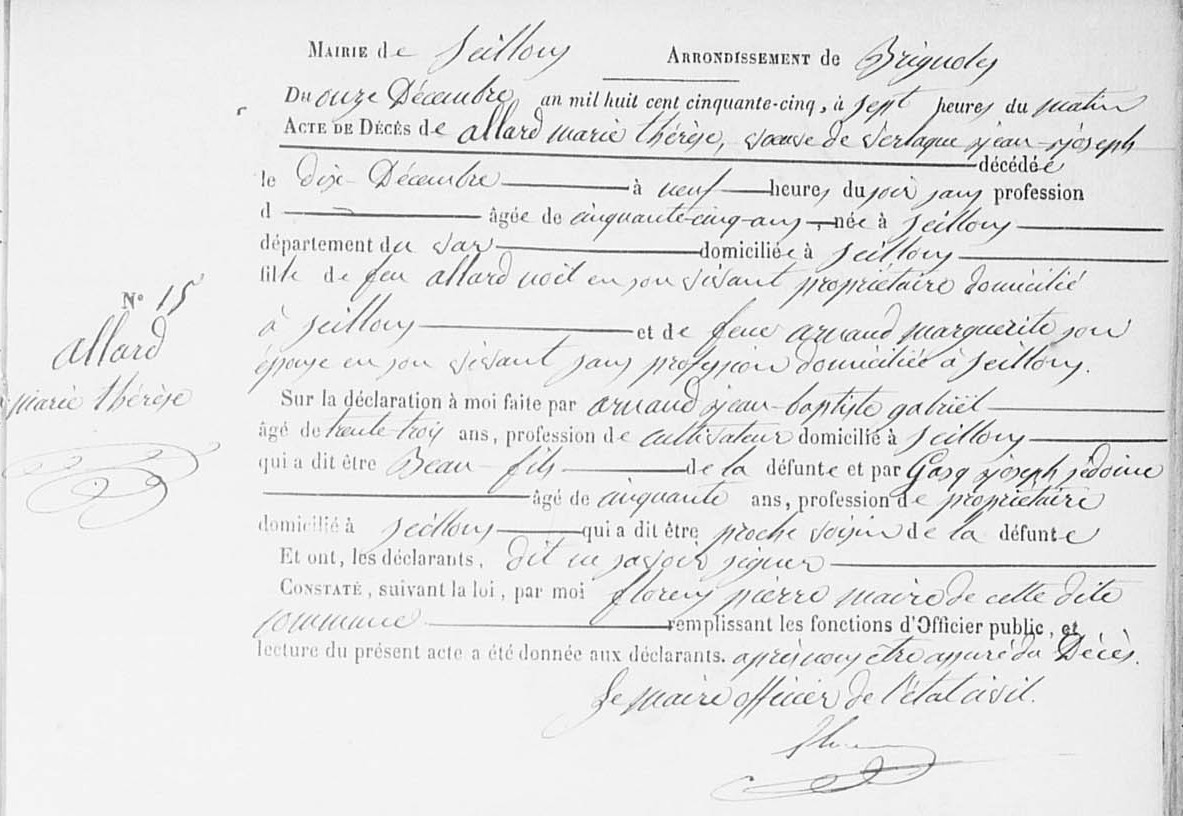 Mairie de Seillons Arrondissement de Brignoles
Du onze Décembre an mil huit cent cinquante-cinq, à sept heures du matin
Acte de Décès de allard marie thérèse, veuve de verlaque jean-joseph
décédée
le dix Décembre à neuf heures du soir sans profession
d âgée de cinquante-cinq-ans, née à Seillons
département du var domiciliée à Seillons
fille de feu allard noël en son vivant propriétaire domicilié
N° 15
à Seillons et de feue arnaud marguerite son
allard
épouse en son vivant sans profession domiciliée à Seillons.
marie thérèse
Sur la déclaration à moi faite par arnaud jean-baptiste gabriël
âgé de trente-trois ans, profession de cultivateur domicilié à Seillons
qui a dit être Beau-fils de la défunte et par Gasq joseph
âgé de cinquante ans, profession de propriétaire
domicilié à Seillons qui a dit être proche voisin de la défunte
Et ont, les déclarants, dit ne savoir signer
Constaté, suivant la loi, par moi florens pierre maire de cette dite
commune remplissant les fonctions d'Officier public, et
lecture du présent acte a été donnée aux déclarants. après nous être assuré du Décès.
Le maire officier de l'état civil.